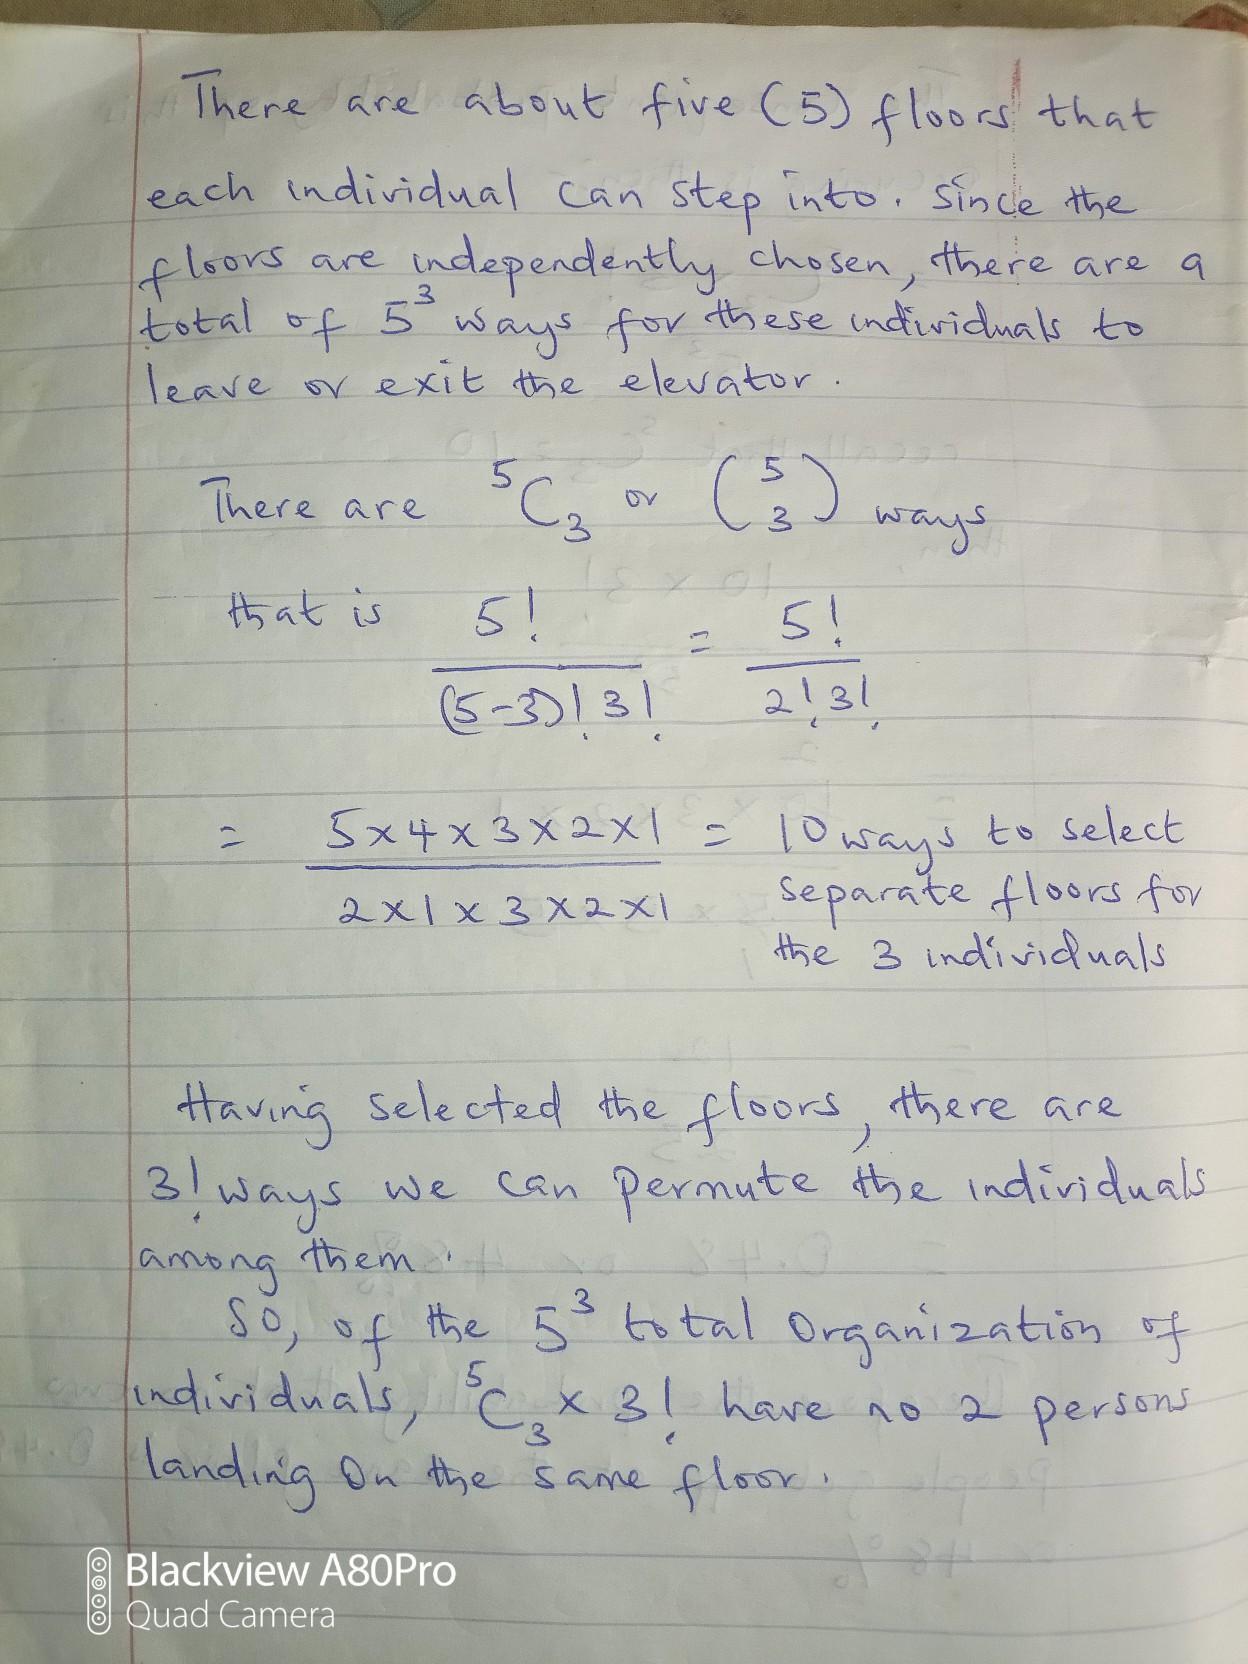 There are about five (5) floors that
each individual can step into. Since the
floors are independently chosen, there are a
total of 5³ ways for these individuals to
leave or exit the elevator.
There are ⁵C₃ or (5 3) ways
that is 5!/(5-3)! 3! = 5!/2! 3!
= 5x4x3x2x1/2x1x3x2x1 = 10 ways to select
separate floors for
the 3 individuals
Having selected the floors, there are
3! ways we can permute the individuals
among them.
So, of the 5³ total organization of
individuals, ⁵C₃ x 3! have no 2 persons
landing on the same floor.
Blackview A80Pro
Quad Camera